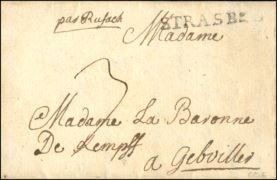 par Rufach
STRASB
Madame
3
Madame La Baronne
De Kempff
a Gebviller